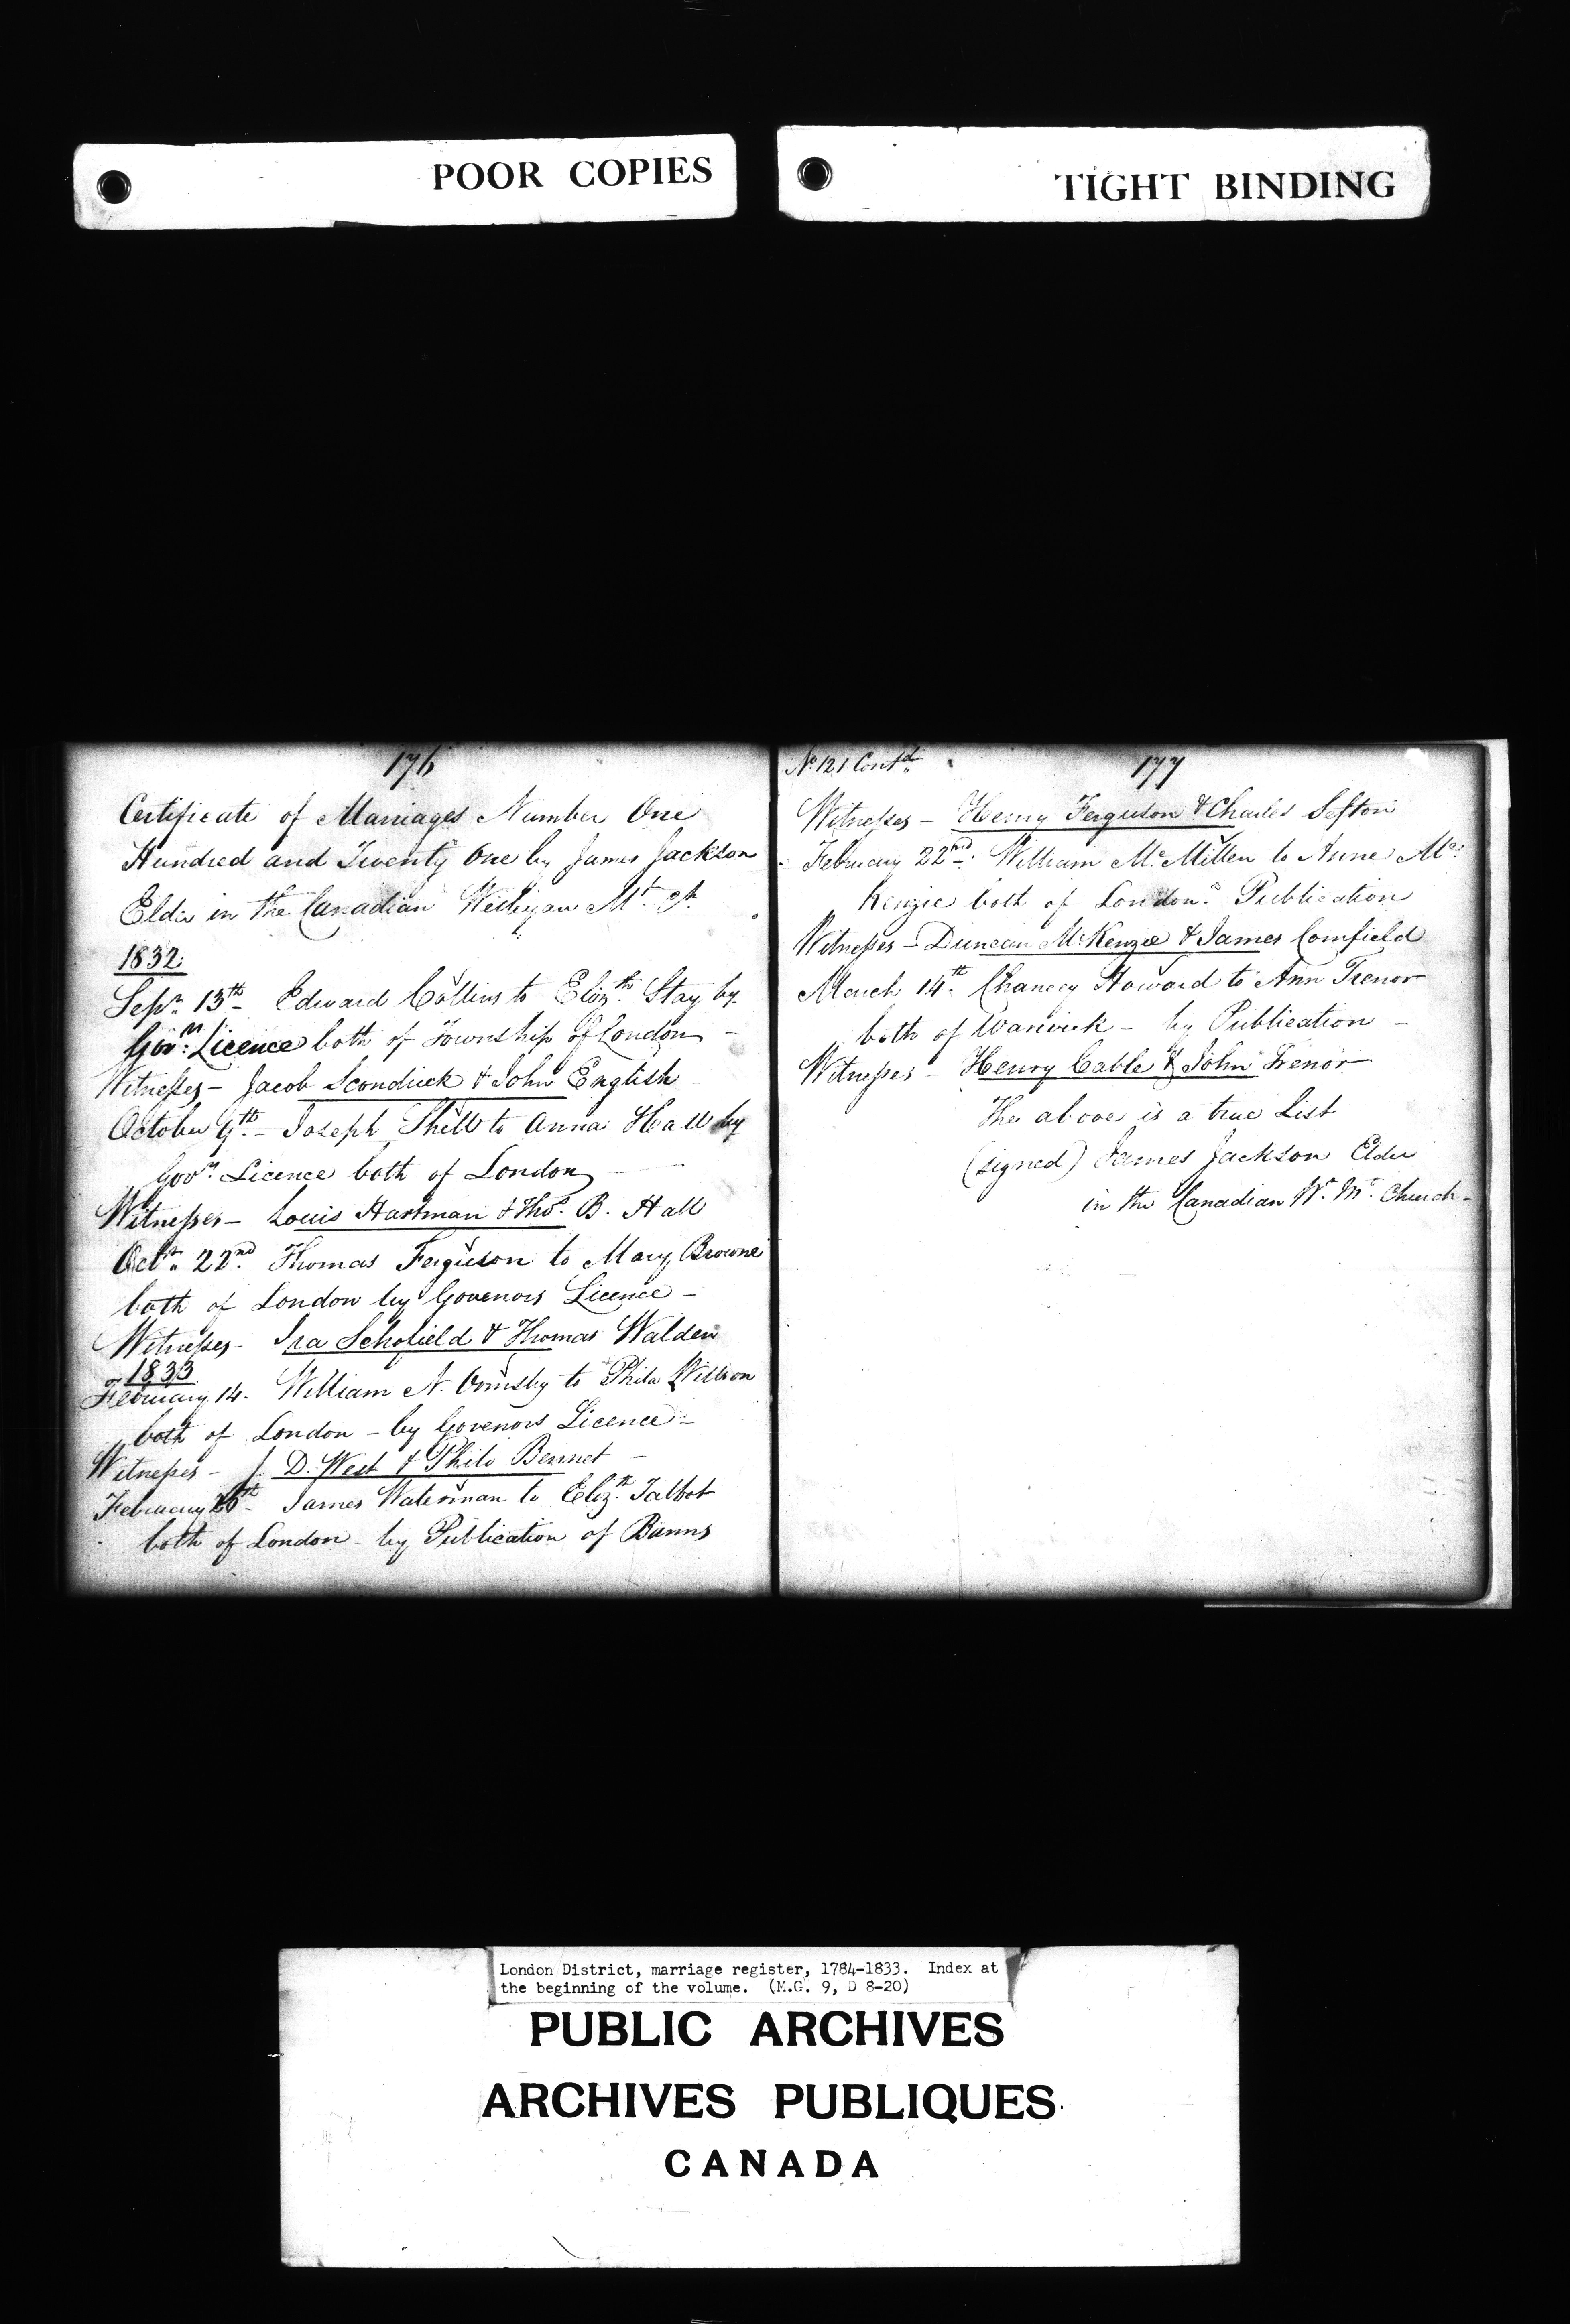 POOR COPIES
TIGHT BINDING
176
Certificate of Marriages Number One
Hundred and Twenty One by James Jackson
Elder in the Canadian Wesleyan Mt. Ch.
1832.
Sepr. 13th Edward Collins to Elizth. Stay by
Govrs. Licence both of Township of London -
Witnesses - Jacob Scondrick & John English
October 9th - Joseph Shell to Anna Hall by
Govrs. Licence both of London
Witnesses - Louis Hartman & Thos. B. Hall
Octr. 22nd. Thomas Ferguson to Mary Browne
both of London by Govenors Licence -
Witnesses - Ira Schofield & Thomas Walden
1833
February 14. William N. Ormsby to Phila Willson
both of London - by Govenors Licence -
Witnesses - J. D. West & Philo Bennet -
February 26th - James Waterman to Elizth. Talbot
both of London - by Publication of Banns
No. 121 Contd.
177
Witnesses - Henry Ferguson & Charles Sefton
February 22nd. William McMillen to Anne Mc.
Kenzie both of London Publication
Witnesses - Duncan McKenzie & James Comfield
March 14th. Chancey Howard to Ann Trenor
both of Warwick - by Publication -
Witnesses - Henry Cable & John Trenor
The above is a true List
(signed) James Jackson Elder
in the Canadian Wn. Mt. Church -
London District, marriage register, 1784-1833. Index at
the beginning of the volume. (M.G. 9, D 8-20)
PUBLIC ARCHIVES
ARCHIVES PUBLIQUES
CANADA